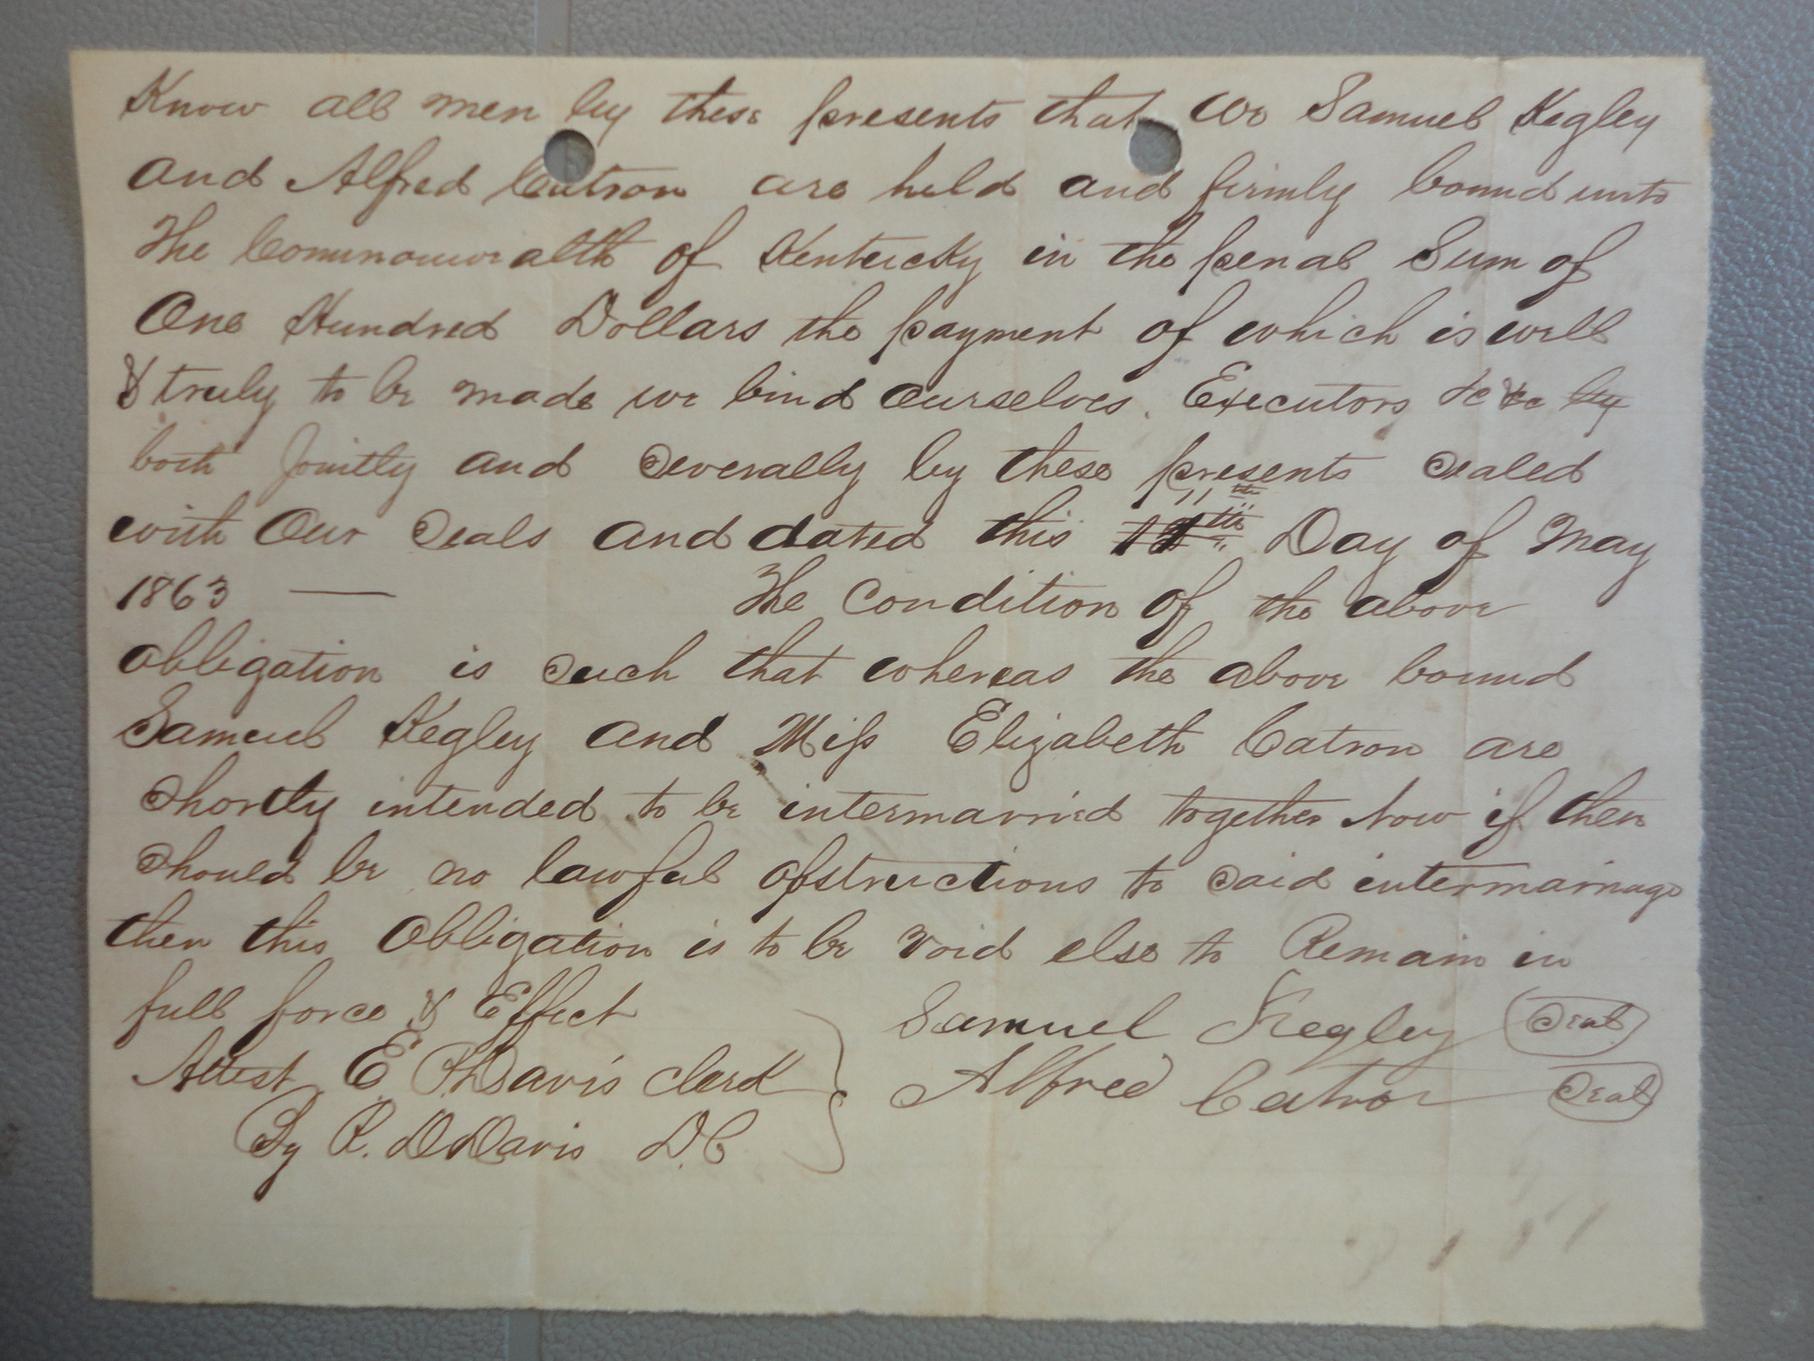 Know all men by these presents that we Samuel Kegley
and Alfred Catron are held and firmly bound unto
The Commonwealth of Kentucky in the penal Sum of
One Hundred Dollars the payment of which is well
& truly to be made we bind ourselves. Executors &c &c by
both Jointly and severally by these presents sealed
with Our seals and dated this 11th Day of May
1863 — The Condition of the above
obligation is such that whereas the above bound
Samuel Kegley and Miss Elizabeth Catron are
shortly intended to be intermarried together Now if then
should be no lawful obstructions to said intermarriage
then this Obligation is to be void else to Remain in
full force & Effect
Samuel Kegley Seal
Attest E Davis clerk
Alfred Catron Seal
By R. D Davis D.C